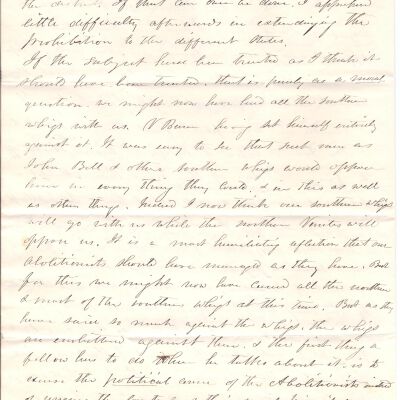 the District. If that can once be done, I apprehend
little difficulty afterwards in extending the
prohibition to the different States.
If the subject had been treated as I think it
should have been treated, that is, purely as a moral
question, we might now have had all the southern
whigs with us. V Buren having set himself entirely
against it. It was easy to see that such men as
John Bell & other southern whigs would oppose
him in every thing they could, & in this as well
as other things. Indeed I now think our southern whigs
will go with us while the northern Vanites will
oppose us. It is a most humiliating reflection that our
Abolitionists should have managed as they have. But
for this we might now have carried all the northern
& most of the southern whigs at this time. But as they
have said so much against the whigs, the whigs
are embittered against them. & the first thing a
fellow has to do when he talks about it, is to
censure the political course of the Abolitionists instead
of